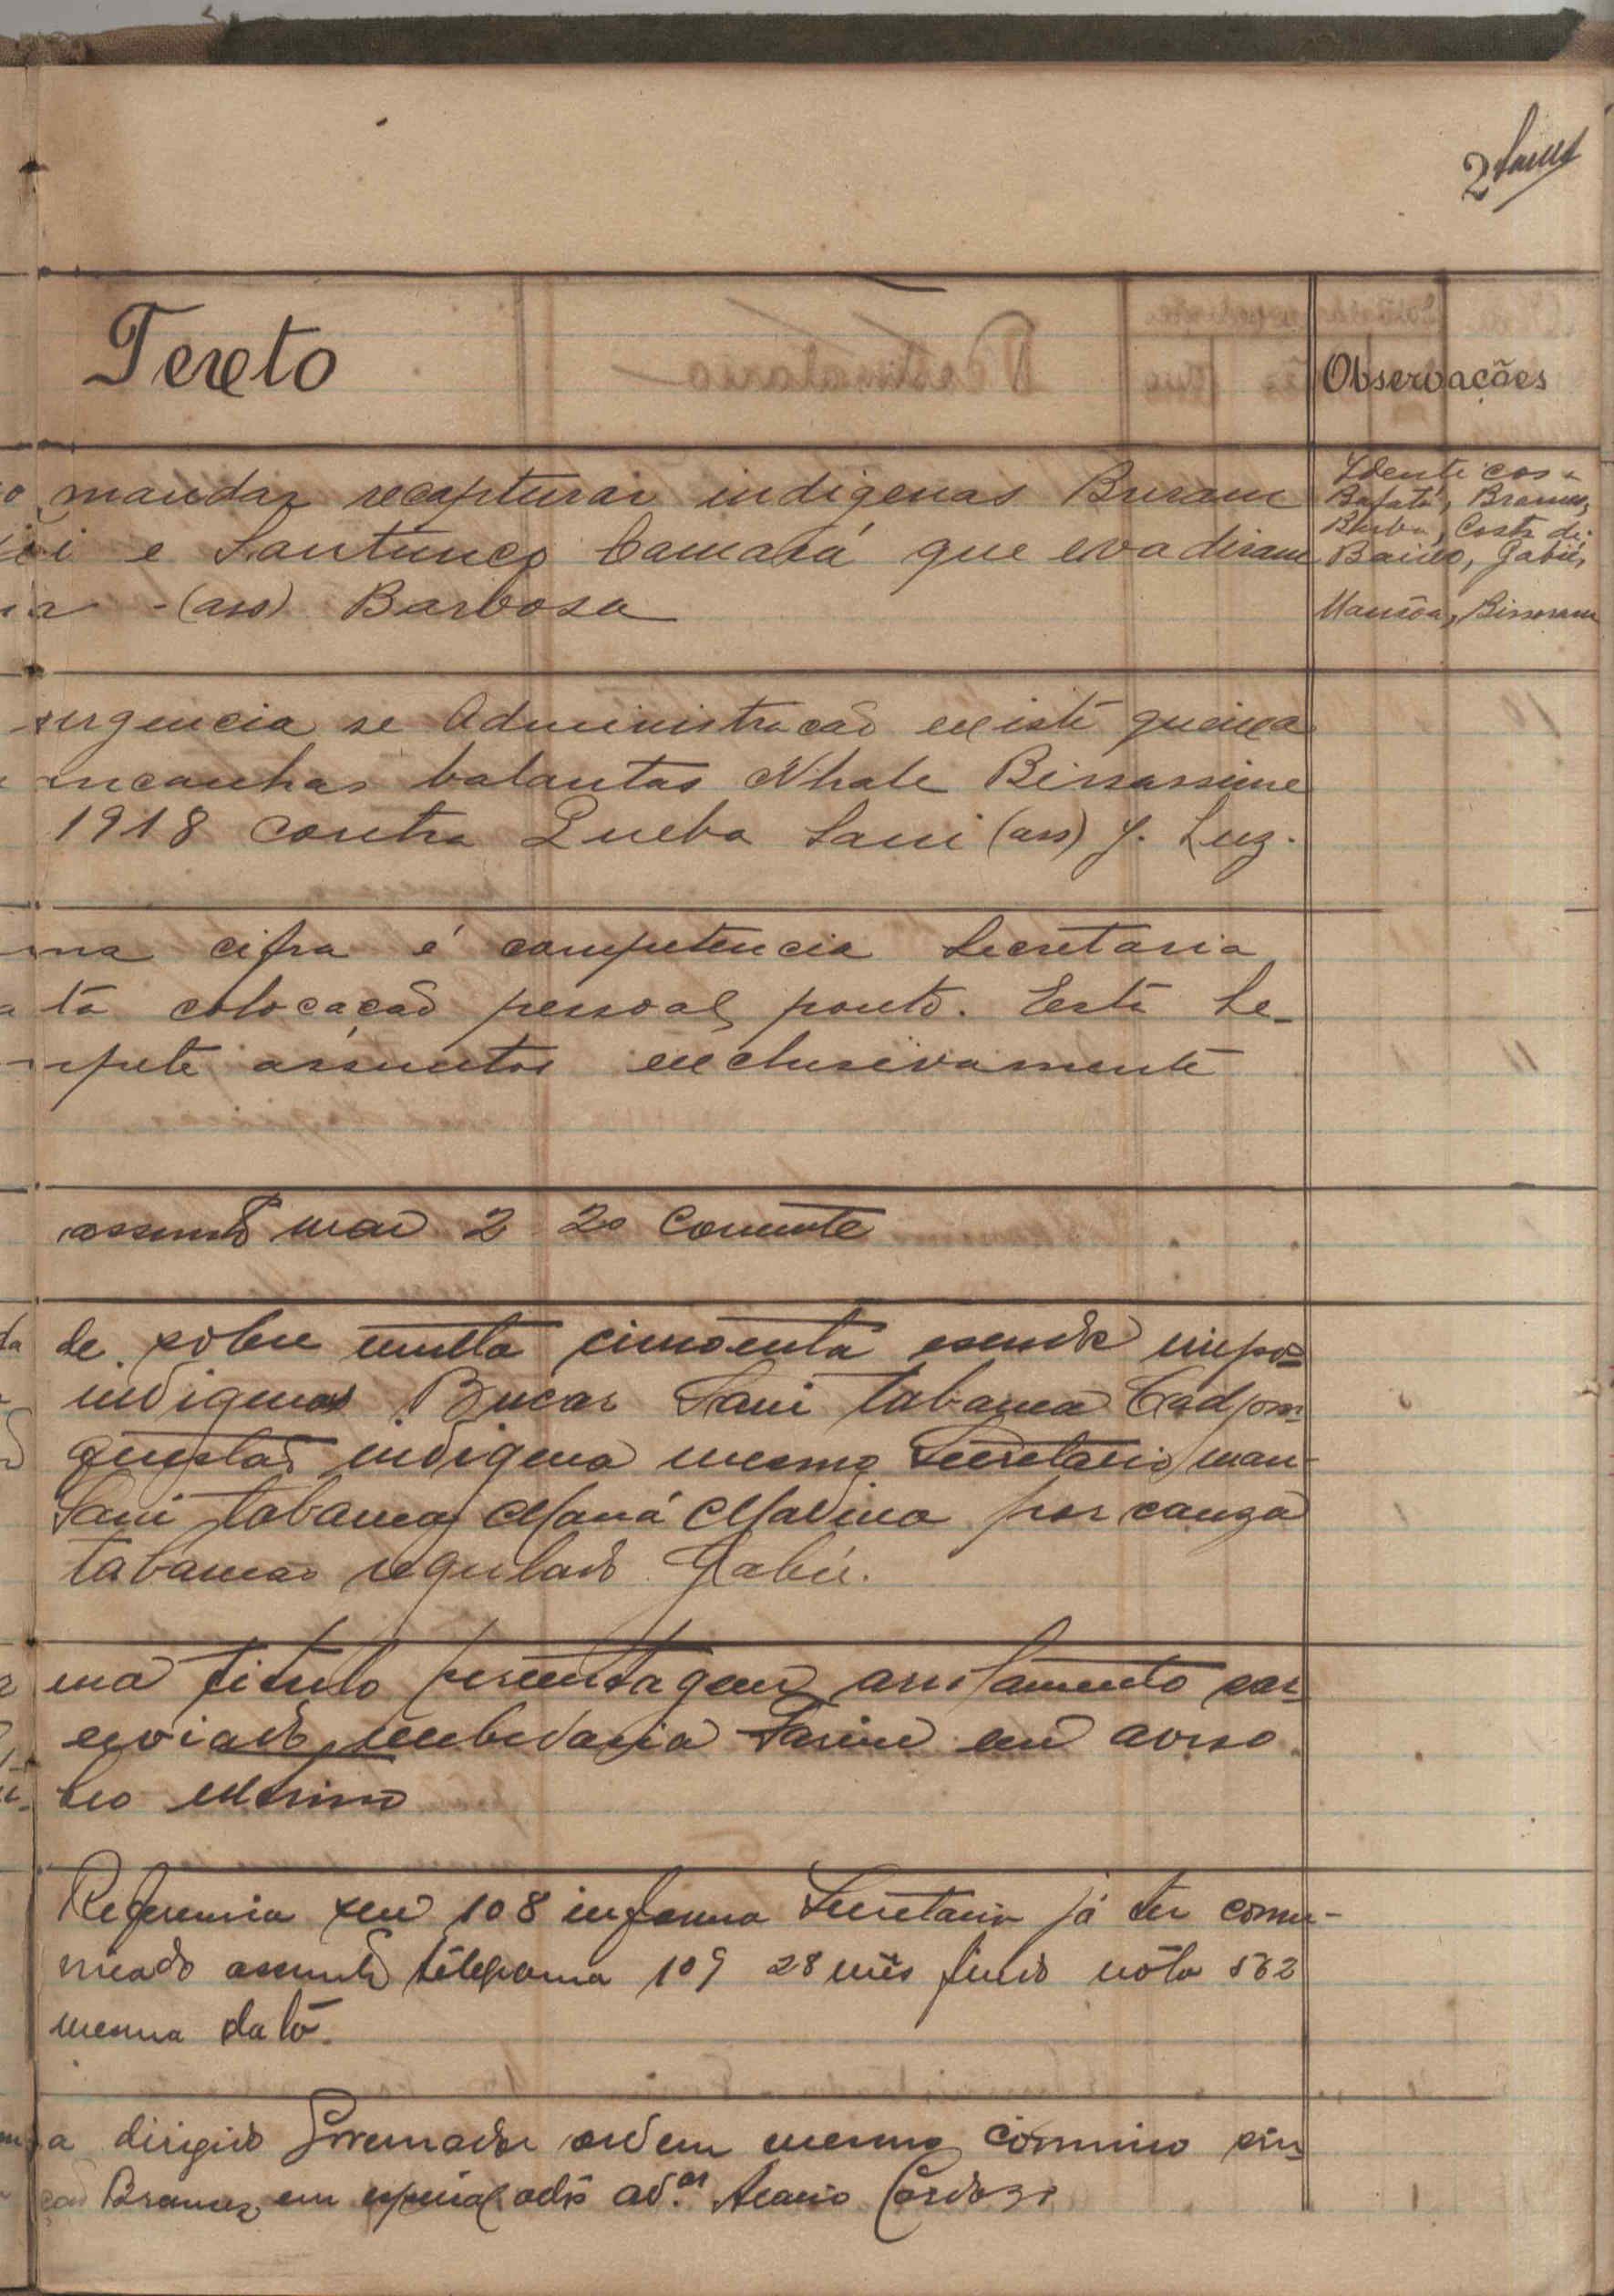 2
Texto
Observações
mandar recapturar indigenas Buram
e Santunco Camará que evadiram
(ass) Barbosa
Identicos a
Bafatá, Brames,
Buba, Costa de
Baixo, Gabú,
Mansôa, Bissoram
urgencia se Administração existe queixa
mcanhas balantas Nhale Bissassime
1918 contra Queba Sani (ass) J. Luz.
ma cifra é competencia Secretaria
ta colocação pessoal, ponto. Esta Se-
mpete assuntos exclusivamente
assunto 2 20 Corrente
de sobre multa cincoenta escudos impos=
indigenas Bucar Sani tabanca Cad por
questão indigena mesmo Secretario man-
Sani tabanca Maná Madina por causa
tabancas regulado Gabú.
ma titulo percentagem arrolamento
enviado recebedoria Farim em aviso
Referencia seu 108 informa Secretaria já ter comu-
nicado assunto telegrama 109 28 mês findo nota 562
mesma data.
a dirigido Governador ordem mesmo comunico
Brames, em especial adº ad.or Acacio Cardoso